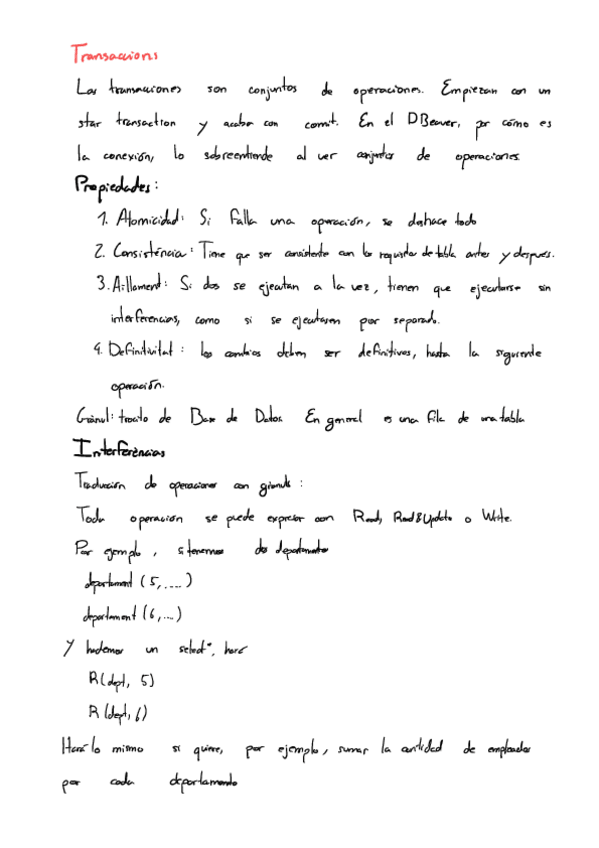 Transaccions
Las transacciones son conjuntos de operaciones. Empiezan con un
star transaction y acaba con comit. En el DBeaver, por cómo es
la conexión, lo sobreentiende al ver conjuntos de operaciones.
Propiedades:
1. Atomicidad: Si falla una operación, se deshace todo
2. Consisténcia: Tiene que ser consistente con los requisitos de tabla antes y después.
3. Aïllament: Si dos se ejecutan a la vez, tienen que ejecutarse sin
interferencias, como si se ejecutasen por separado.
4. Definitivitat: los cambios deben ser definitivos, hasta la siguiente
operación.
Grànul: trocito de Base de Datos. En general es una fila de una tabla
Interferències
Traducción de operaciones con grànuls:
Toda operación se puede expresar con Read, Read&Update o Write.
Por ejemplo, si tenemos dos departamentos
departament (5,....)
departament (6,...)
Y hacemos un select*, haré
R(dept, 5)
R(dept, 6)
Hará lo mismo si quiere, por ejemplo, sumar la cantidad de empleados
por cada departamento